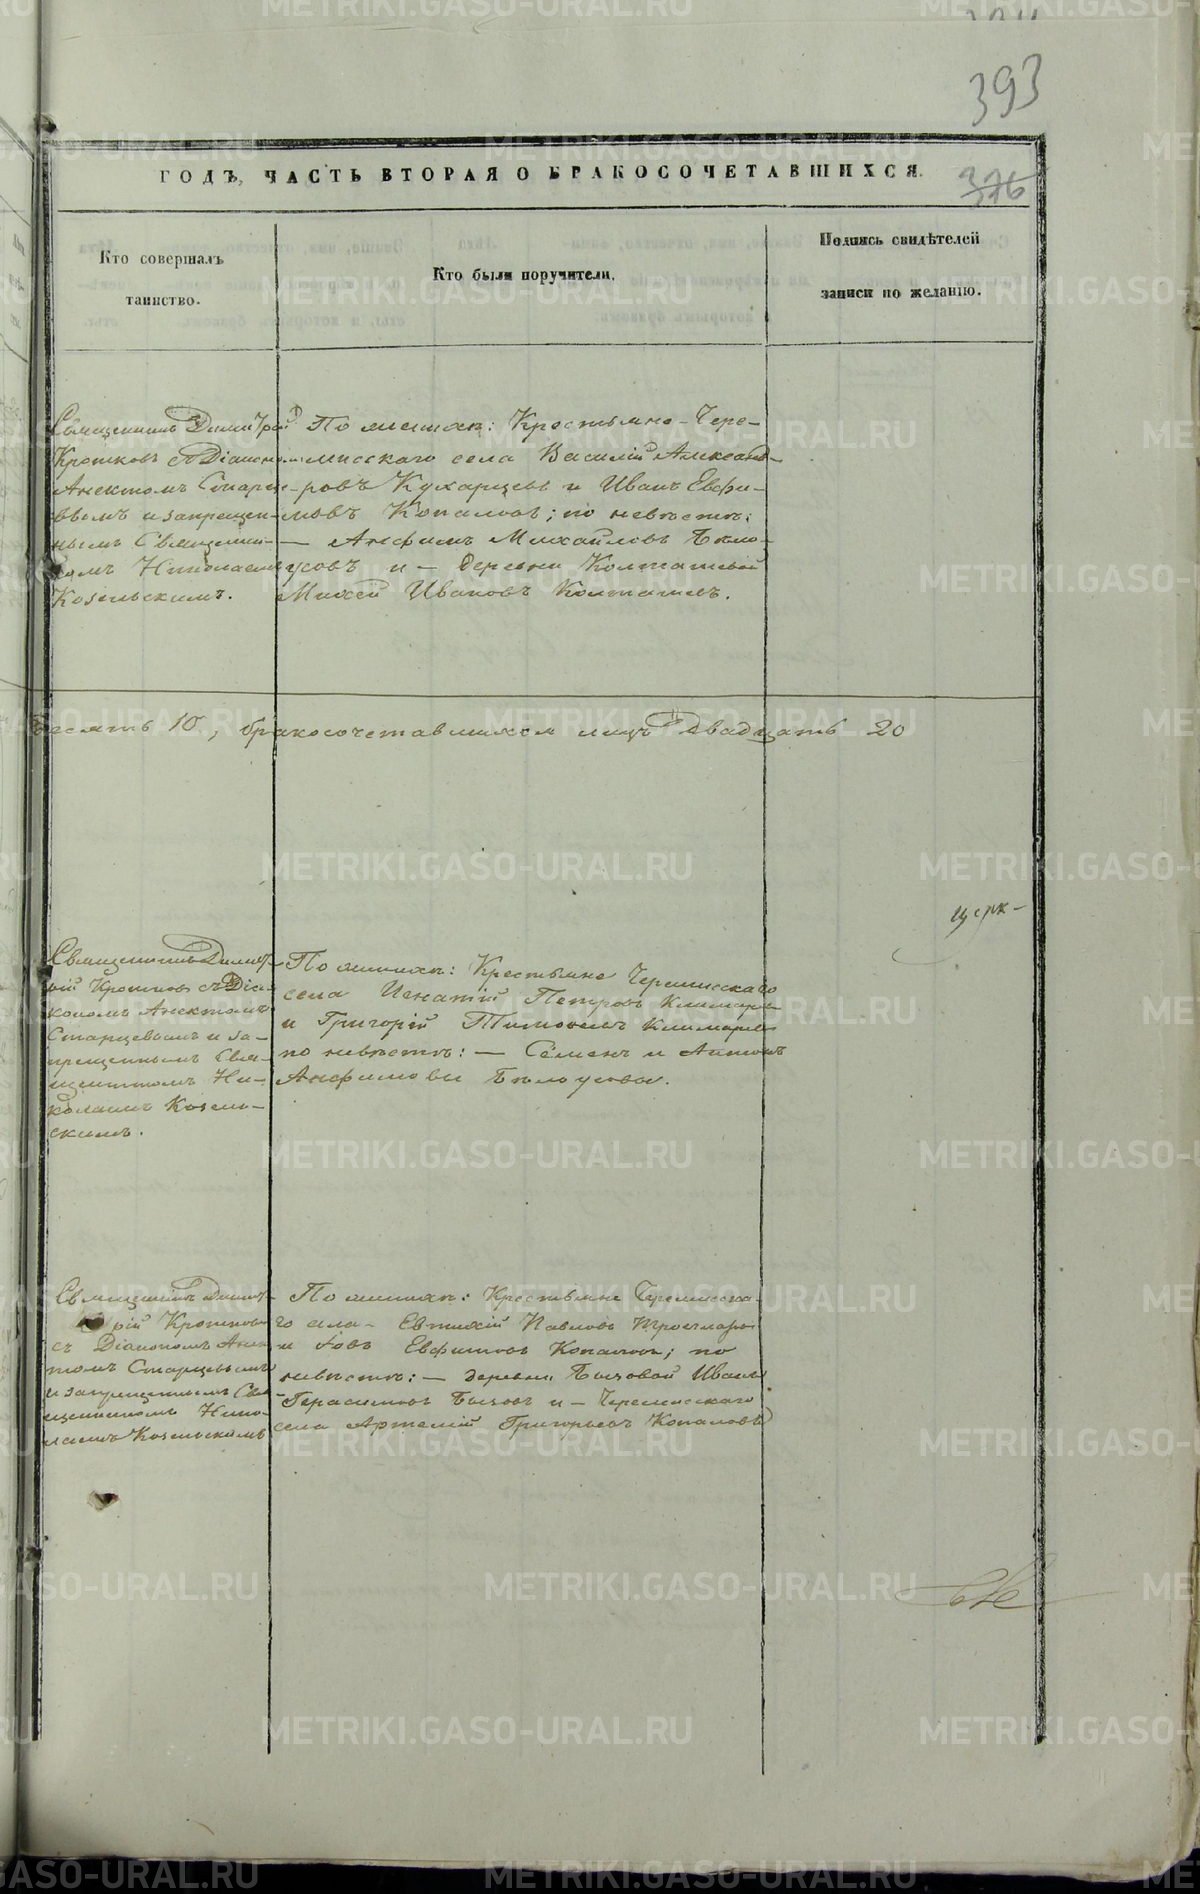 393
ГОДЪ, ЧАСТЬ ВТОРАЯ О БРАКОСОЧЕТАВШИХСЯ.
376
Кто совершалъ
таинство.
Кто были поручители.
Подпись свидѣтелей
записи по желанію.
Священникъ Димитрій
Кротковъ съ Діакономъ
Анектомъ Старце-
вымъ и запрещен-
нымъ Священни-
комъ Николаемъ
Козельскимъ.
По женихѣ: Крестьяне Чере-
мисскаго села Василій Александ-
ровъ Кухарцевъ и Иванъ Евфи-
мовъ Копаловъ; по невѣстѣ:
— Анфимъ Михайловъ Бѣло-
усовъ и — деревни Колташевой
Михей Ивановъ Колташевъ.
десять 10, бракосочетавшихся лицъ двадцать 20
церк-
Священникъ Димит-
рій Кротковъ съ Діа-
кономъ Анектомъ
Старцевымъ и за-
прещеннымъ Свя-
щенникомъ Ни-
колаемъ Козель-
скимъ.
По женихѣ: Крестьяне Черемисскаго
села Игнатій Петровъ
и Григорій Тимофеевъ
по невѣстѣ: — Семенъ и Антонъ
Анфимовы Бѣлоусовы.
Священникъ Димит-
рій Кротковъ
съ Діакономъ Анек-
томъ Старцевымъ
и запрещеннымъ Свя-
щенникомъ Нико-
лаемъ Козельскимъ
По женихѣ: Крестьяне Черемисска-
го села — Евтихій Павловъ
и Іовъ Евфимовъ Копаловъ; по
невѣстѣ: — деревни Бызовой Иванъ
Герасимовъ Бызовъ и — Черемисскаго
села Артемій Григорьевъ Копаловъ
METRIKI.GASO-URAL.RU